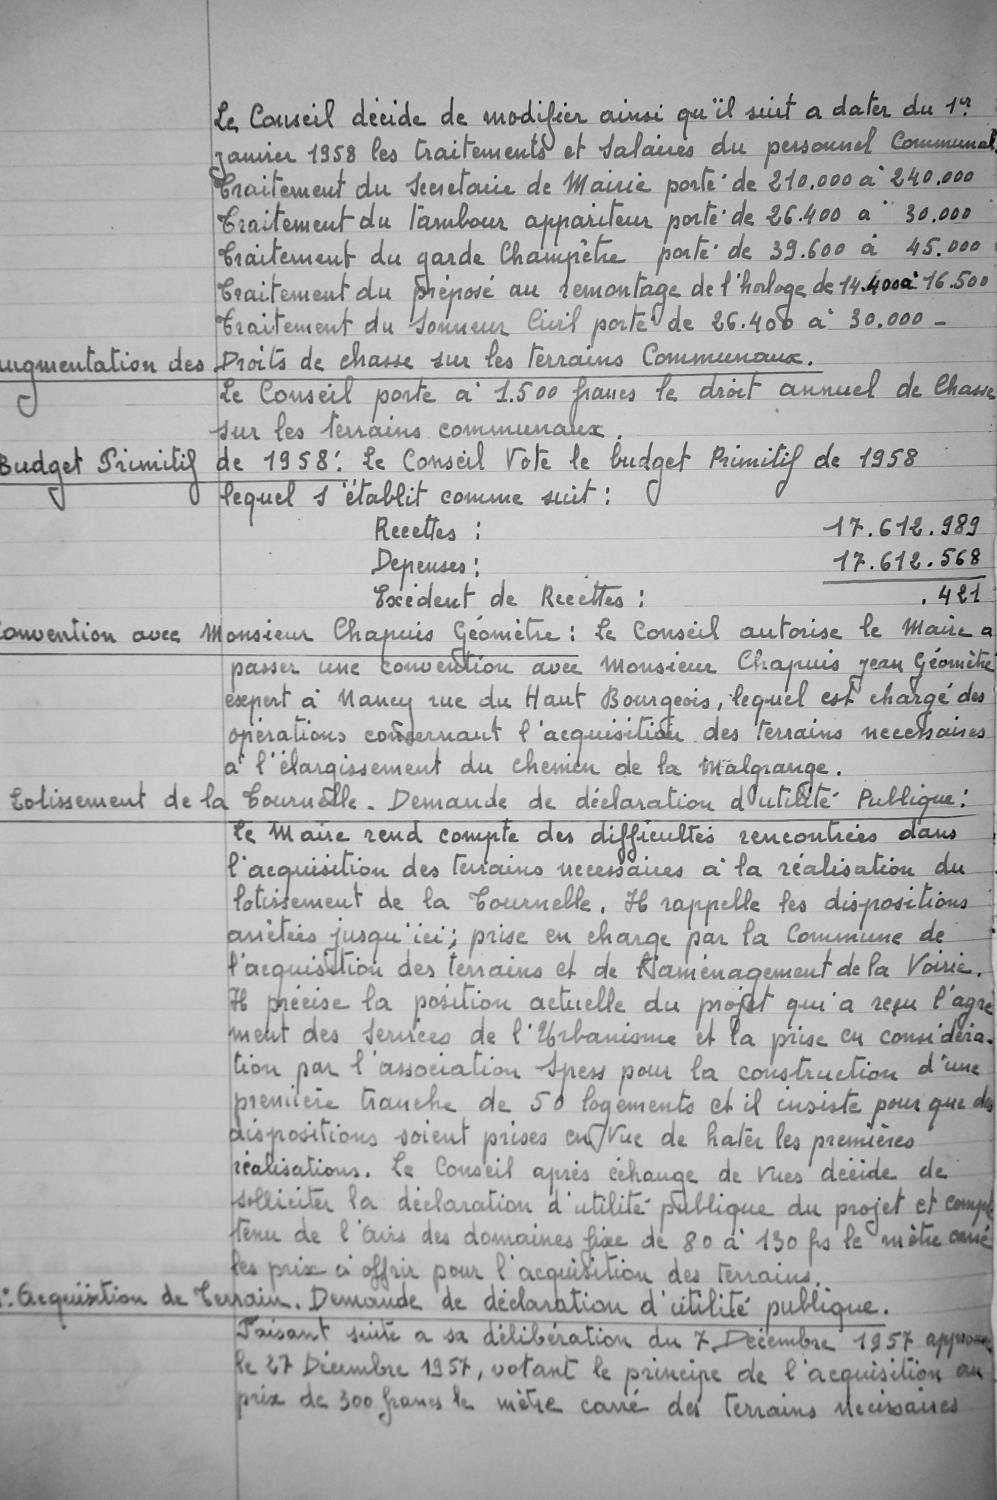 Le Conseil décide de modifier ainsi qu'il suit a dater du 1er
janvier 1958 les traitements et salaires du personnel Communal.
Traitement du Secretaire de Mairie porté de 210.000 à 240.000
Traitement du tambour appariteur porté de 26.400 a 30.000
Traitement du garde Champêtre porté de 39.600 à 45.000
Traitement du préposé au remontage de l'horloge de 14.400 à 16.500
Traitement du Sonneur Civil porté de 26.400 à 30.000 -
ugmentation des Droits de chasse sur les terrains Communaux.
Le Conseil porte à 1.500 francs le droit annuel de Chasse
sur les terrains communaux.
Budget Primitif de 1958: Le Conseil Vote le budget Primitif de 1958
lequel s'établit comme suit:
Recettes: 17.612.989
Depenses: 17.612.568
Exédent de Recettes: .421
onvention avec Monsieur Chapuis Géomètre: Le Conseil autorise le Maire a
passer une convention avec Monsieur Chapuis Jean Géomètre
expert à Nancy rue du Haut Bourgeois, lequel est chargé des
opérations concernant l'acquisition des terrains necessaires
à l'élargissement du chemin de la Malgrange.
Lotissement de la Tournelle. Demande de déclaration d'utilité Publique:
Le Maire rend compte des difficultés rencontrées dans
l'acquisition des terrains necessaires à la réalisation du
lotissement de la Tournelle. Il rappelle les dispositions
arrêtées jusqu'ici; prise en charge par la Commune de
l'acquisition des terrains et de l'aménagement de la Voirie.
Il précise la position actuelle du projet qui a reçu l'agré
ment des Services de l'Urbanisme et la prise en considéra-
tion par l'association Spess pour la construction d'une
première tranche de 50 logements et il insiste pour que des
dispositions soient prises en Vue de hater les premières
réalisations. Le Conseil après échange de vues décide de
solliciter la déclaration d'utilité publique du projet et compte
tenu de l'avis des domaines fixe de 80 à 130 frs le mètre carré
les prix à offrir pour l'acquisition des terrains.
Acquisition de Terrain. Demande de déclaration d'utilité publique.
Faisant suite a sa délibération du 7 Décembre 1957 approuvée
le 27 Décembre 1957, votant le principe de l'acquisition au
prix de 300 francs le mètre carré des terrains necessaires